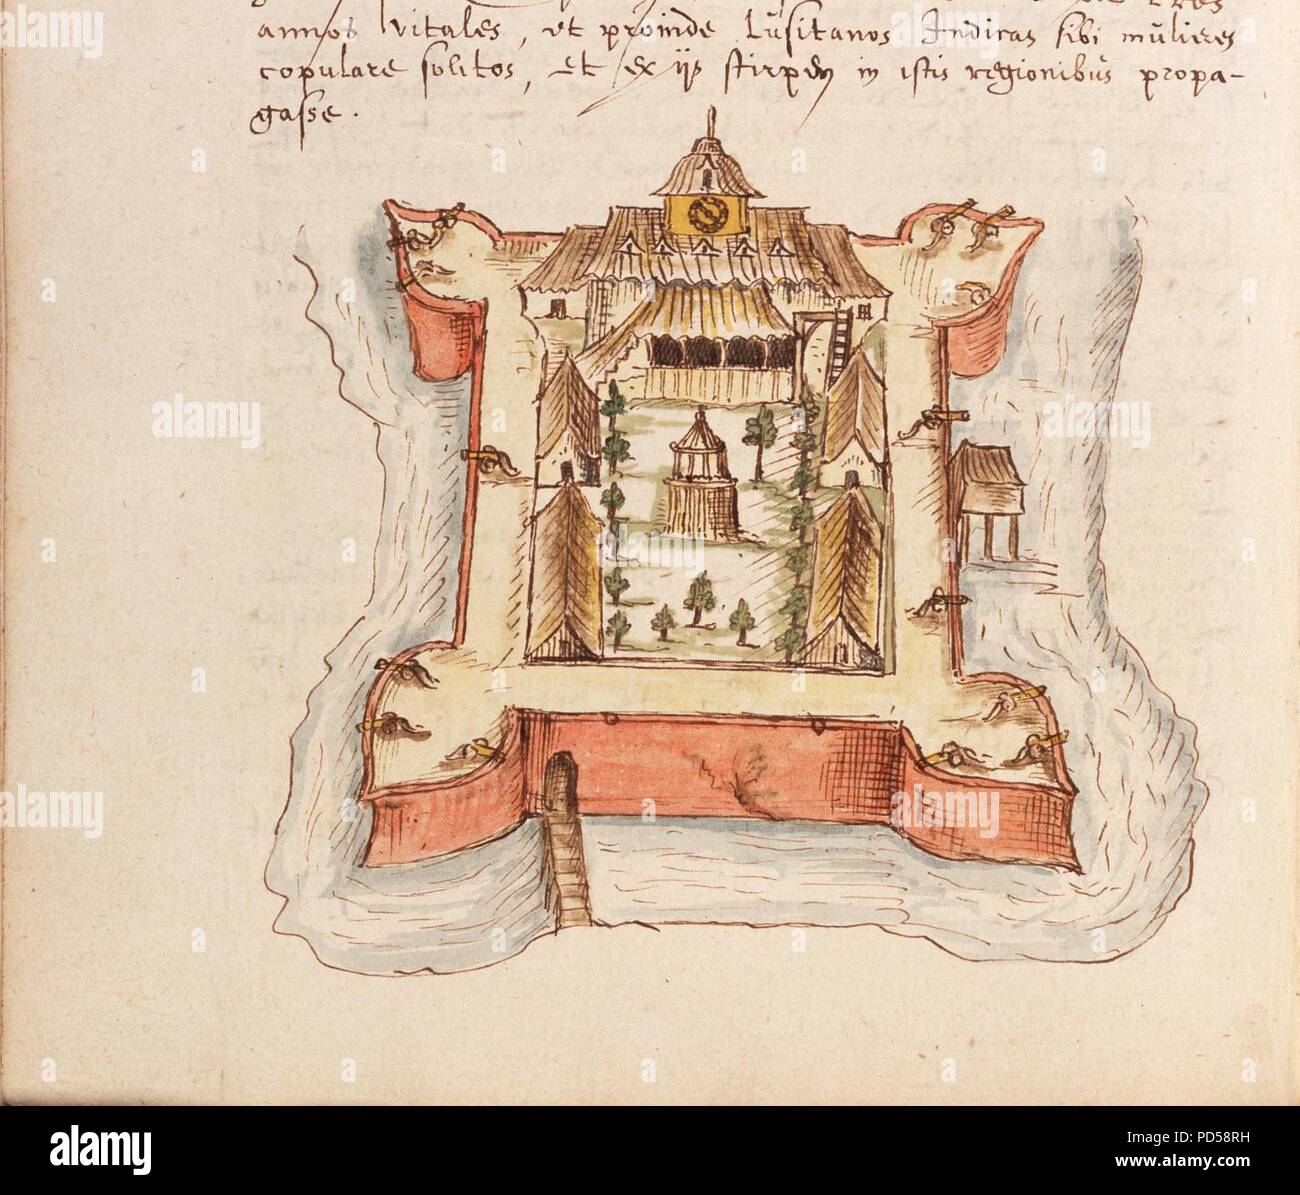 tres
annos vitales, et proinde Lusitanos Indicas sibi mulieres
copulare solitos, et ex ijs stirpem in istis regionibus propa-
gasse.
alamy
alamy
alamy
alamy
alamy
alamy
alamy
alamy
Image ID: PD58RH
www.alamy.com